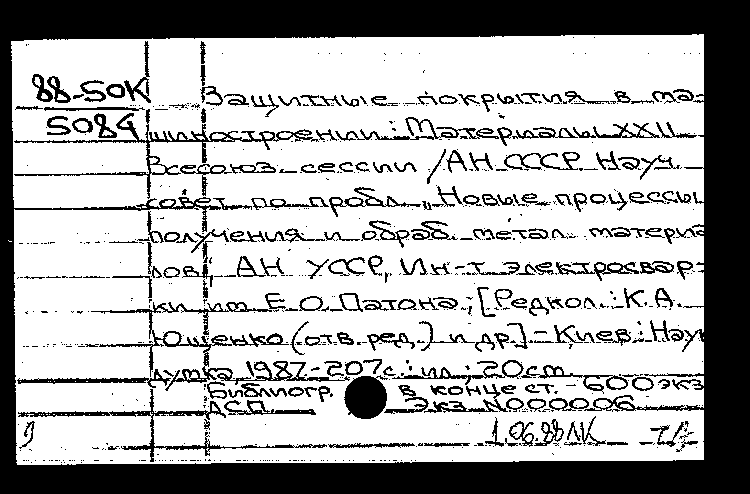 88-50К Защитные покрытия в ма-
5084 шиностроении : Материалы XXII
Всесоюз. сессии / АН СССР, Науч.
совет по пробл. „Новые процессы
получения и обраб. метал. материа
лов", АН УССР, Ин-т электросвар-
ки им. Е. О. Патона ; [Редкол. : К. А.
Ющенко (отв. ред.) и др.] - Киев : Наук
думка, 1987. - 207 с. : ил ; 20 cm.
Библиогр. в конце ст. - 600 экз
ДСП. Экз. N000006
9 1.06.88 ЛК